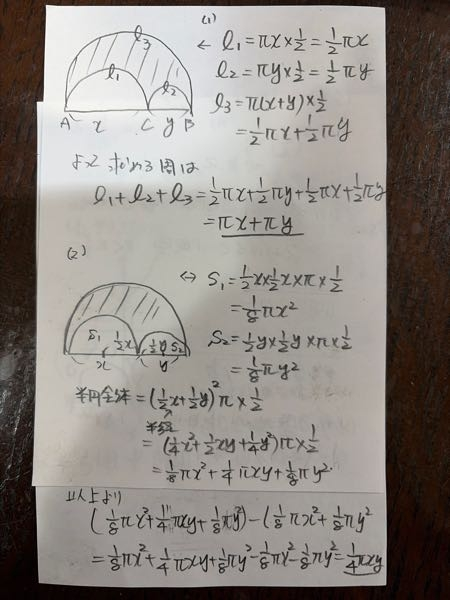 (1)
l₃
l₁
l₂
A x C y B
← l₁ = πx × 1/2 = 1/2πx
l₂ = πy × 1/2 = 1/2πy
l₃ = π(x+y) × 1/2
= 1/2πx + 1/2πy
よって 求める周は
l₁+l₂+l₃ = 1/2πx + 1/2πy + 1/2πx + 1/2πy
= πx + πy
(2)
S₁ 1/2x 1/2y S₂
x y
⇔ S₁ = 1/2x × 1/2x × π × 1/2
= 1/8πx²
S₂ = 1/2y × 1/2y × π × 1/2
= 1/8πy²
半円全体 = (1/2x + 1/2y)²π × 1/2
半径
= (1/4x² + 1/2xy + 1/4y²)π × 1/2
= 1/8πx² + 1/4πxy + 1/8πy²
以上より
(1/8πx² + 1/4πxy + 1/8πy²) - (1/8πx² + 1/8πy²
= 1/8πx² + 1/4πxy + 1/8πy² - 1/8πx² - 1/8πy² = 1/4πxy